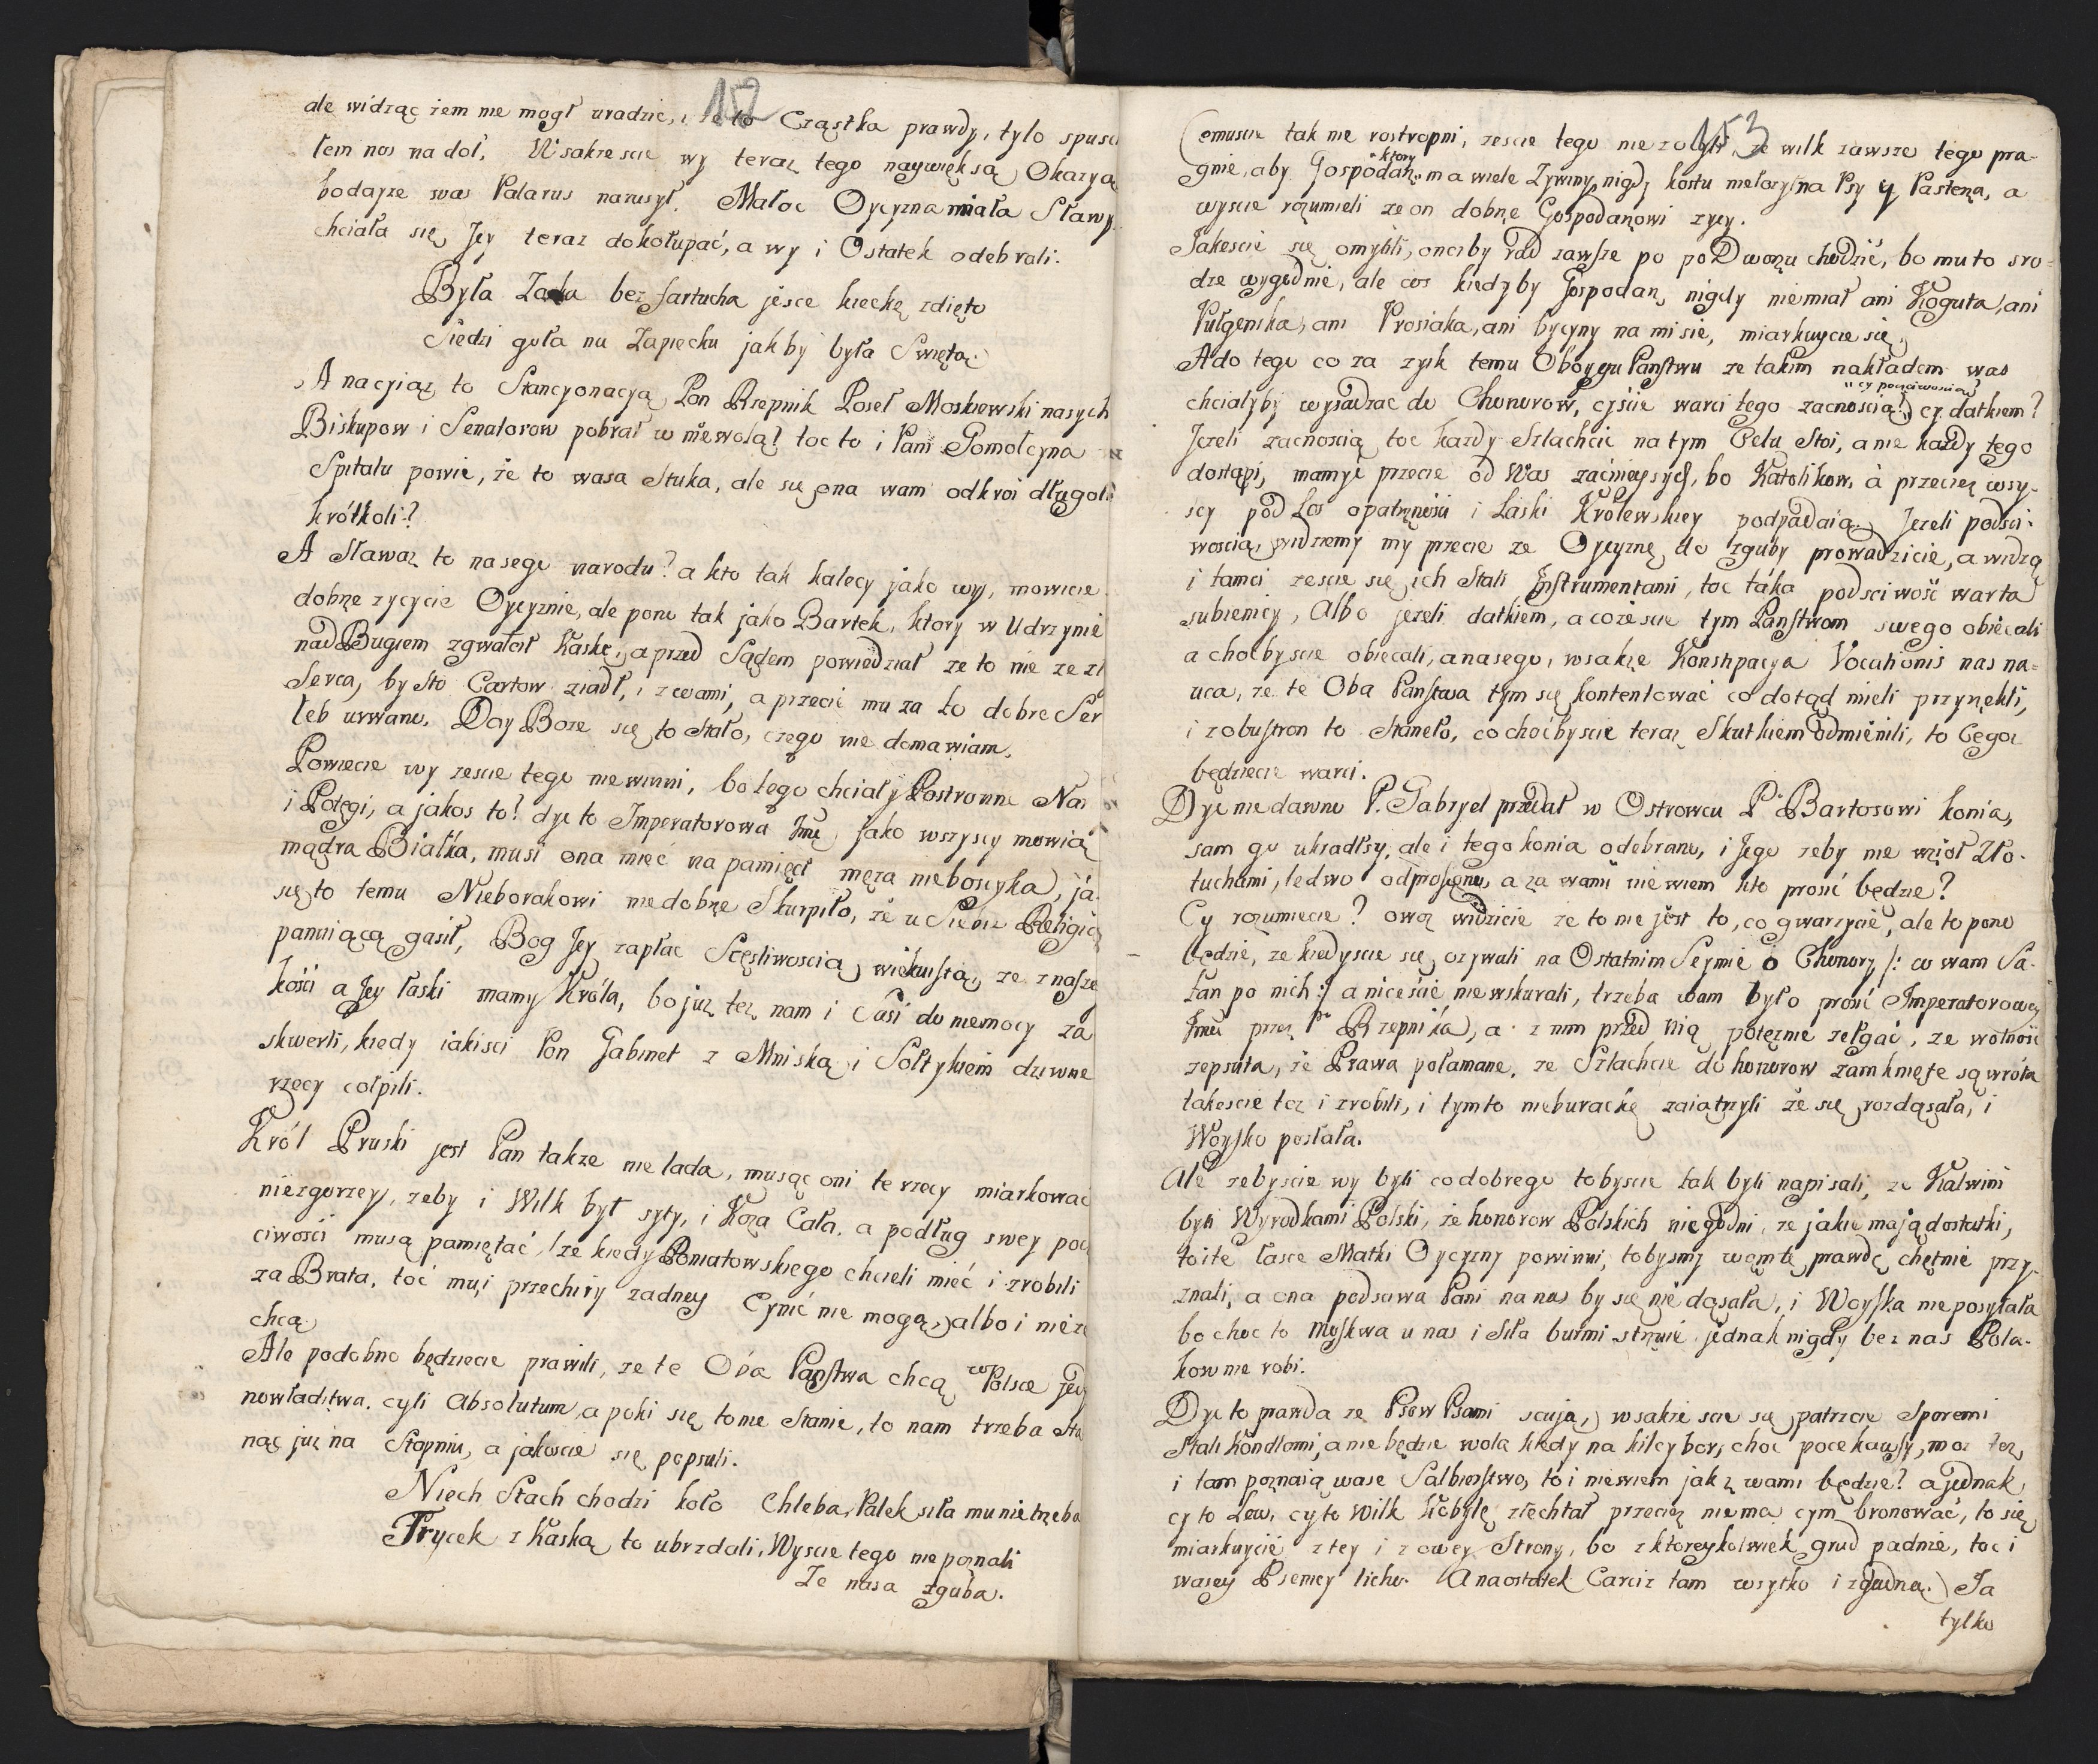 152
ale widząc zem nie mogł uradzic, i ze to Cząstka prawdy, tylo spusci
łem nos na doł, Wsakzescie wy teraz tego naywięksą Okazyą
bodayze was Palarus narusył. Małoc Oycyzna miała Sławy
chciała się Jey teraz dokołupać, a wy i Ostatek odebrali.
Była Zaśka bez fartucha jesce kieckę zdięto
Siedzi goła na Zapiecku jakby była Swięta.
A nacyiąz to Stancyonacyą Pon Rzepnik Poseł Moskiewski nasych
Biskupow i Senatorow pobrał w niewolą? toc to i Pani Gomolcyna
Spitalu powie, że to wasa Stuka, ale się ona wam odkroi długoli
krótkoli?
A Sławaz to nasego narodu? a kto tak kalecy jako wy, mowicie
dobrze zycycie Oycyznie, ale pono tak jako Bartek, ktory w Udrzynie
nad Bugiem zgwałcił Kaskę, a przed Sądem powiedział ze to nie ze zł
Serca, by sto Cartow ziadł, i z wami, a przecie mu za to dobre Ser
łeb urwano. Day Boze się to stało, czego nie domawiam.
Powiecie wy zescie tego niewinni, bo tego chciały Postronne Nar
i Potęgi, a jakos to? dyc to Imperatorowa Jmc jako wszyscy mowią
mądra Białka, musi ona mieć na pamięci męza nieboscyka, ja
się to temu Nieborakowi niedobrze Skurpiło, że u Siebie Religią
panuiącą gasił, Bog Jey zapłac Scęsliwoscią wiekuistą, ze z nasze
kości a Jey łaski mamy Króla, bo juz tez nam i Sasi do niemocy za
skwerli, kiedy iakisci Pon Gabinet z Mniską i Sołtykiem dziwne
rzecy colpili.
Król Pruski jest Pan takze nie lada, musąc oni te rzecy miarkować
niezgorzey, zeby i Wilk był syty, i Koza Cała, a podług swey poc
ciwości musą pamiętać, że kiedy Poniatowskiego chcieli mieć i zrobili
za Brata, toć mu i przechiry zadney Cynić nie mogą, albo i nie z
chcą.
Ale podobno będziecie prawili, ze te Oba Państwa chcą w Polsce jedy
nowładstwa, cyli Absolutum, a poki się to nie Stanie, to nam trzeba sta
nąc juz na Stopniu, a jakoscie się popsuli.
Niech Stach chodzi koło Chleba, Palek siła mu nie trzeba
Frycek z Kaską to ubrzdali, Wyscie tego nie poznali
Ze nasa zguba.
153
Cemuscie tak nie rostropni, zescie tego nie zozyli, ze wilk zawsze tego pra-
gnie, aby Gospodarz ktory ma wiele Zywiny, nigdy kostu nie łozył na Psy y Pasterza, a
wyscie rozumieli ze on dobrze Gospodarzowi zycy.
Jakescie się omylili, onciby rad zawsze po podworzu chodzić, bo mu to sro-
dze wygodnie, ale cos kiedyby Gospodarz nigdy nie miał ani Koguta, ani
Pułgęnska, ani Prosiaka, ani bycyny na misie, miarkuycie się.
A do tego co za zysk temu Oboygu Państwu ze takim nakładem was
chciałyby wysadzac do Chonorow, cyscie warci tego zacnoscią? cy pocciwoscią cy datkiem?
Jezeli zacnoscią toc kazdy Szlachcic na tym Celu Stoi, a nie kazdy tego
dostąpi, mamyć przecie od Was zacnieysych, bo Katolikow, à przeciez wsy-
scy pod Los opatrznosci i Łaski Krolewskiey podpadaią. Jezeli podsci-
woscią, widziemy my przecie ze Oycyznę do zguby prowadzicie, a widzą
i tamci zescie się ich Stali Jnstrumentami, toc taka podsciwość warta
subienicy, Albo jezeli datkiem, a cozescie tym Państwom swego obiecali
a chocbyscie obiecali, a nasego, wsakze Konstypacya Vocationis nas na-
uca, ze te Oba Państwa tym się kontentować co dotąd mieli przyrzekli,
i zobustron to Staneło, co choćbyscie teraz Skutkiem odmienili, to Cegoz
będziecie warci.
Dyc niedawno P. Gabryel przedał w Ostrowcu P. Bartosowi konia,
sam go ukradłsy, ale i tego konia odebrano, i Jego zeby nie wziął Zło-
tuchami, ledwo odproszono, a za wami niewiem kto prosić będzie?
Cy rozumiecie? owoz widzicie ze to nie jest to, co gwarzycie, ale to pono
będzie, ze kiedyscie się ozywali na Ostatnim Seymie o Chonory /: co wam Sa-
tan po nich :/ a nicescie niewskurali, trzeba wam było prosić Imperatorowey
Jmci przez Pa Rzepnika, a z nim przed nią potęznie zełgać, ze wolność
zepsuta, że Prawa połamane, ze Szlachcie do honorow zamknięte są wróta
takescie tez i zrobili, i tymto nieburackę zaiątrzyli że się rozdąsała, i
Woysko posłała.
Ale zebyscie wy byli co dobrego tobyscie tak byli napisali, ze Kalwini
byli Wyrodkami Polski, że honorow Polskich niegodni, ze jakie mają dostatki,
to ite łasce Matki Oycyzny powinni, tobysmy wąm tę prawdę chętnie przy-
znali, a ona podsciwa Pani na nas by się nie dąsała, i Woyska nie posyłała
bo choc to Moskwa u nas i Siła burmi strzuie jednak nigdy bez nas Pola-
kow nie robi.
Dyc to prawda ze Psow Psami scują, wsakze scie się patrzcie Sporemi
Stali Kondlami, a nie będzie wola kiedy na kilcy bor, choc pocekawsy, moz tez
i tam poznaią wase Salbierstwo, to i niewiem jak z wami będzie? a jednak
cy to Lew, cy to Wilk Kobyłę złechtał przeciez niema cym bronować, to się
miarkuycie z tey i z owey Strony, bo z ktoreykolwiek grad padnie, toc i
wasey Psenicy licho. A naostatek Carciz tam wsytko i zgadną. Ja
tylko